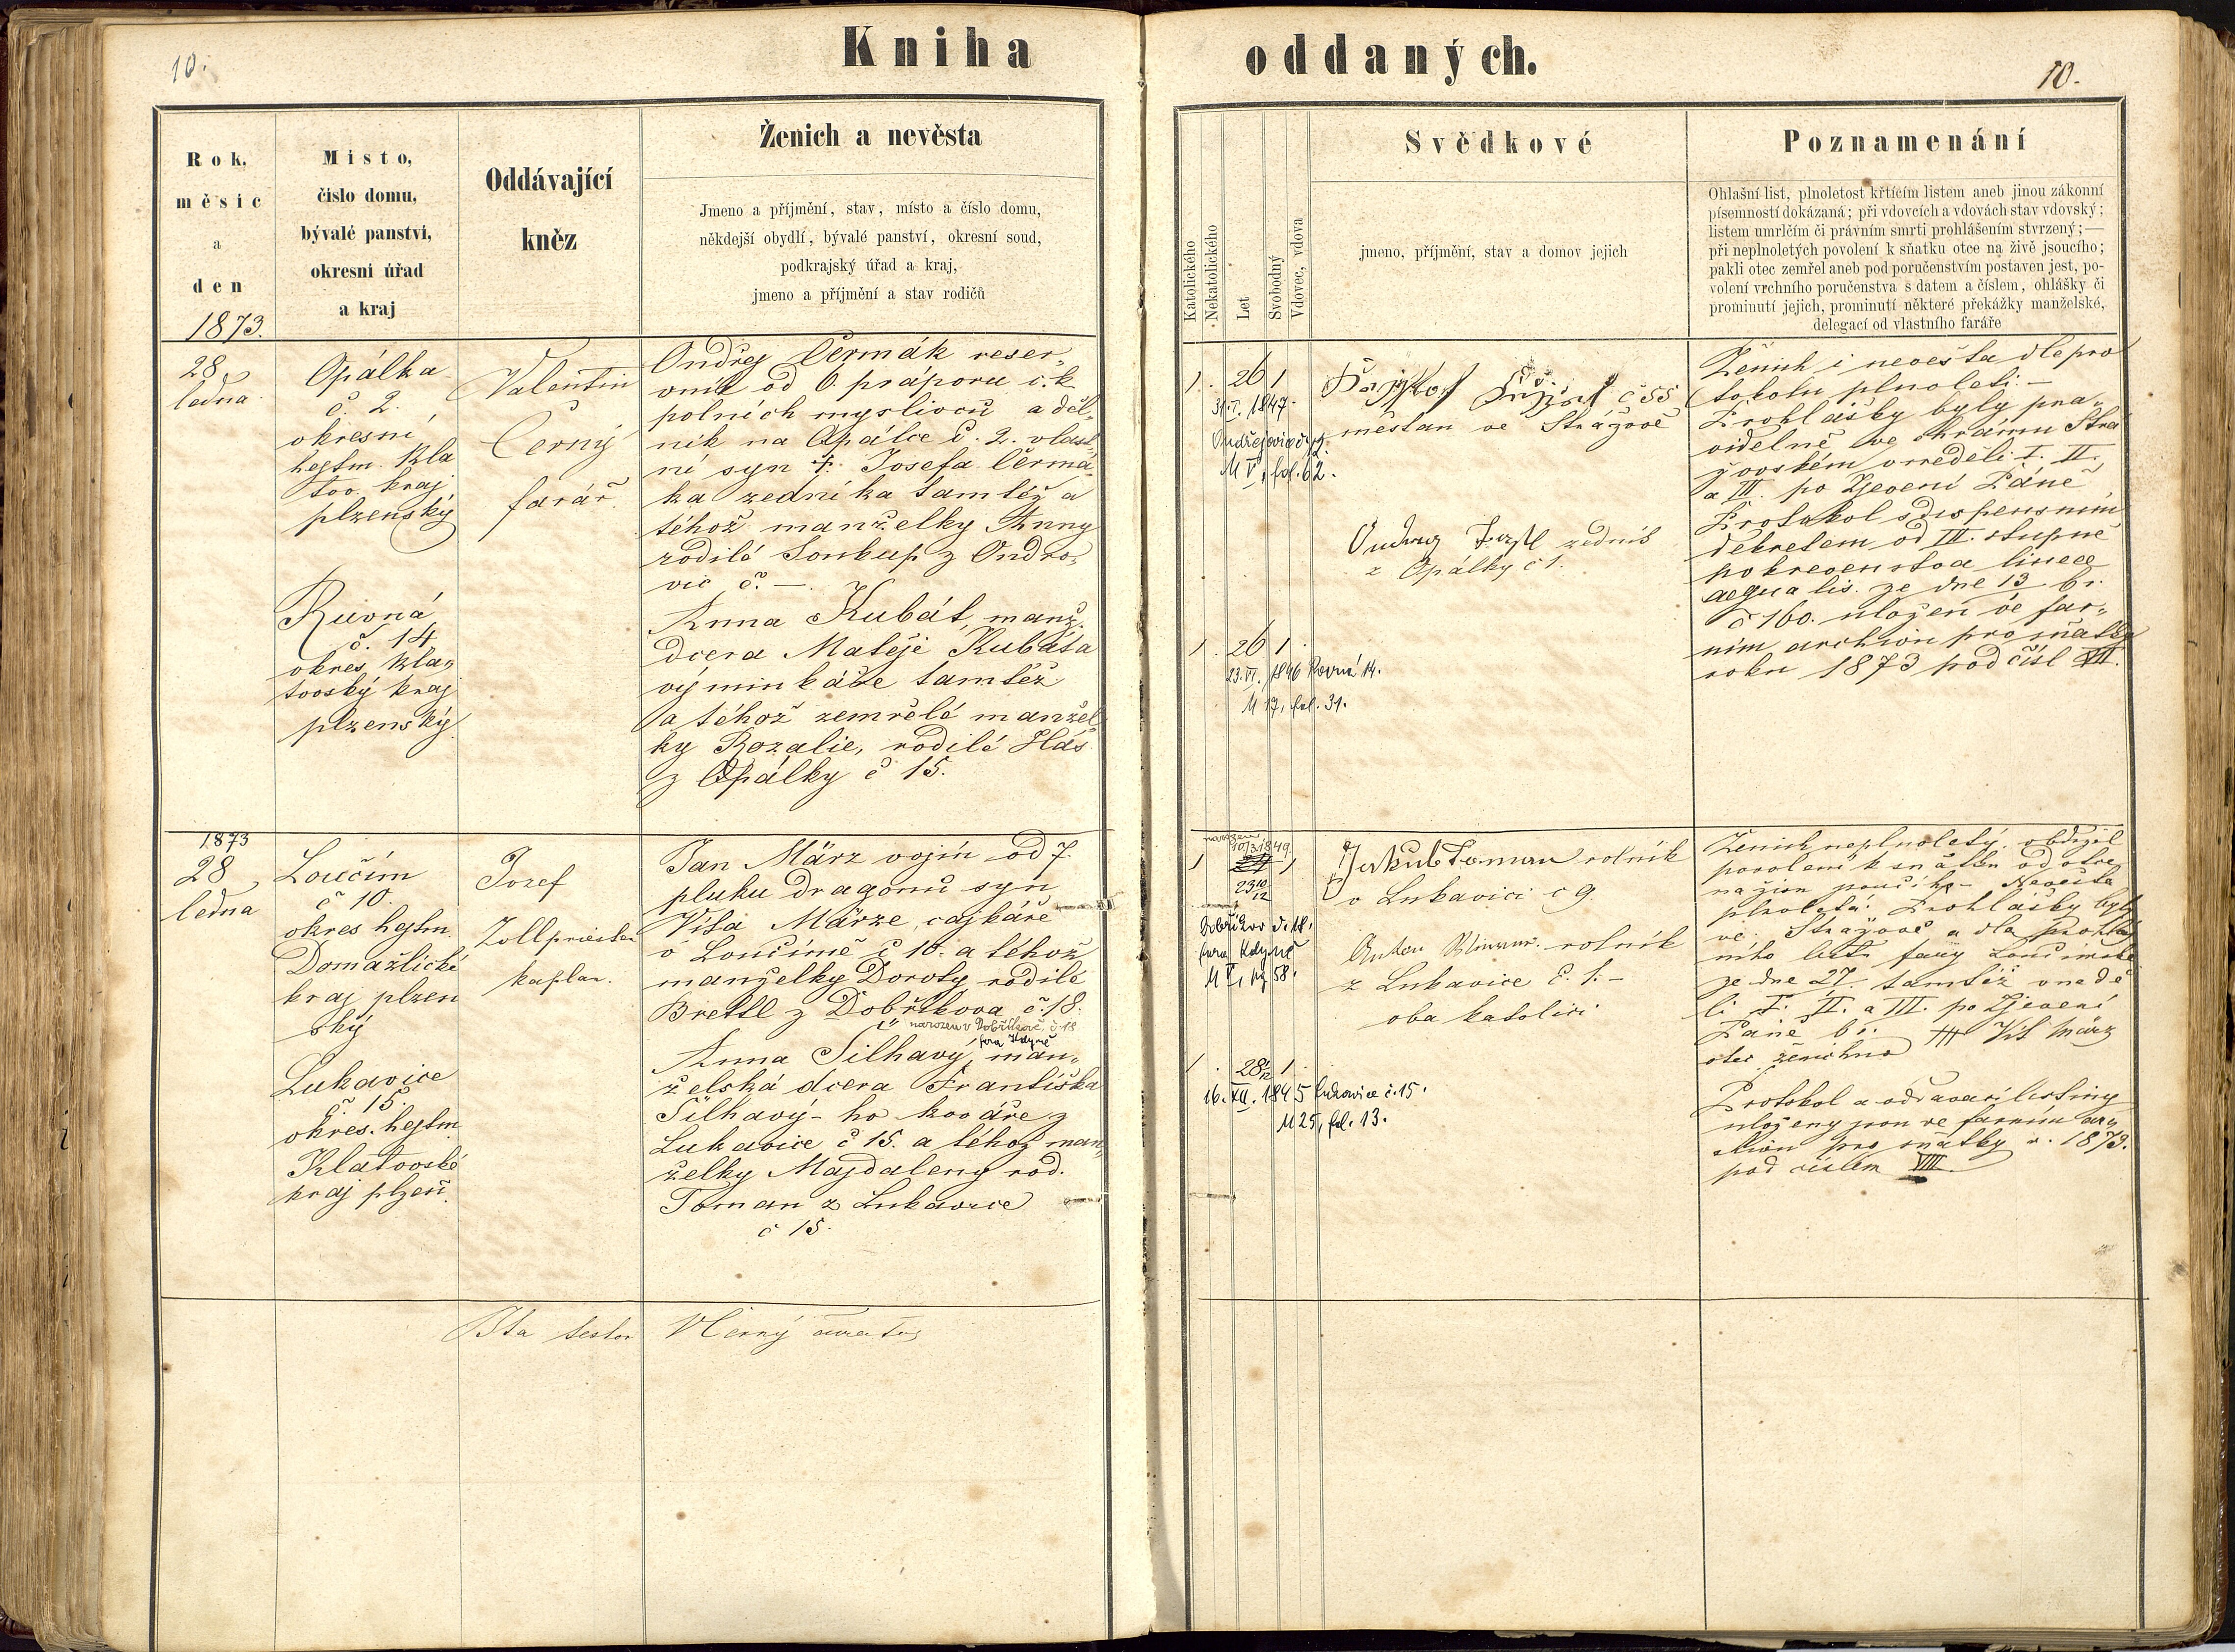 10.
Kniha
oddaných.
10.
Rok,
měsíc
a
den
1873.
Místo,
číslo domu,
bývalé panství,
okresní úřad
a kraj
Oddávající
kněz
Ženich a nevěsta
Jmeno a příjmění, stav, místo a číslo domu,
někdejší obydlí, bývalé panství, okresní soud,
podkrajský úřad a kraj,
jmeno a příjmění a stav rodičů
Katolického
Nekatolického
Let
Svobodný
Vdovec, vdova
Svědkové
jmeno, příjmění, stav a domov jejich
Poznamenání
Ohlašní list, plnoletost křtícím listem aneb jinou zákonní
písemností dokázaná; při vdovcích a vdovách stav vdovský;
listem umrlčím či právním smrti prohlášením stvrzený; —
při neplnoletých povolení k sňatku otce na živě jsoucího;
pakli otec zemřel aneb pod poručenstvím postaven jest, po-
volení vrchního poručenstva s datem a číslem, ohlášky či
prominutí jejich, prominutí některé překážky manželské,
delegací od vlastního faráře
28
ledna
Opálka
č. 2.
okresní
hejtm. Kla
tov. kraj
plzenský
Ruvná
č. 14
okres, Kla„
tovský kraj
plzenský
Valentin
Černý
farář.
Ondřej Čermák reser„
vník od 6. práporu c. k
polních myslivců a děl„
ník na Opálce č. 2. vlast
ní syn †. Josefa Čermá
ka zedníka tamtéž a
téhož manželky Anny
rodilé Soukup z Ondřo„
vic č. —
Anna Kubát, manž.
dcera Matěje Kubáta
výminkáře tamtéž
a téhož zemřelé manžel
ky Rozalie, rodilé Hás
z Opálky č 15.
1. 26 1
31. I. 1847.
Ondřejovice č. 9.
M V, fol. 62.
1. 26 1
23. VI. 1846 Rovná 14.
M 17, fol. 31.
č 55
měštan ve Strážově
zedník
z Opálky č 1.
Ženich i nevěsta dle pro
tokolu plnoletí. —
Prohlášky byly pra„
videlně ve chrámu Strá
žovském v neděli I. II.
a III. po Zjevení Páně
Protokol s dispensním
dekretem od III. stupně
pokrevenstva lineae
aequalis. ze dne 13 t. r.
č 160. uložen ve far„
ním archivu pro sňatky
roku 1873 pod čísl VII.
1873
28
ledna
Loučím
č 10.
okres hejtm.
Domažlické
kraj plzen
ský
Lukavice
č 15.
okres. hejtm.
Klatovské
kraj plzeň.
Josef
Zollpriester
kaplan.
Jan März vojín od 7.
pluku dragonů syn
Víta Märze, cajkáře
v Loučímě č 10. a téhož
manželky Doroty rodilé
Brettl z Dobříkova č. 18.
narozen v Dobříkově č. 18
fara Kdyně
Anna Šilhavý, man„
želská dcera Františka
Šilhavý-ho kováře z
Lukavice č 15. a téhož man„
želky Majdaleny rod.
Toman z Lukavice
č 15.
narozen
10/3 1849.
1 1
23 10/12
Dobříkov č. 18.
fara Kdyně
M V, pg 58.
1. 28 1/12 1
16. XII. 1845 Lukavice č. 15.
M 25, fol. 13.
Jakub Toman rolník
v Lukavici č 9.
rolník
z Lukavice č. 1. —
oba katolíci
Ženich neplnoletý. obdržel
povolení k sňatku od otce
Nevěsta
plnoletá. Prohlášky byly
ve Strážově a dle prohláš
ního listu fary Loučimské
ze dne 27. tamtéž v nedě
li I. II. a III. po Zjevení
Páně t. r. +++ Vít März
otec ženicha
Protokol a oddavací listiny
uloženy jsou ve farním ar„
chivu pro sňatky r. 1873.
pod číslem VIII.
Ita testor VČerný curatus